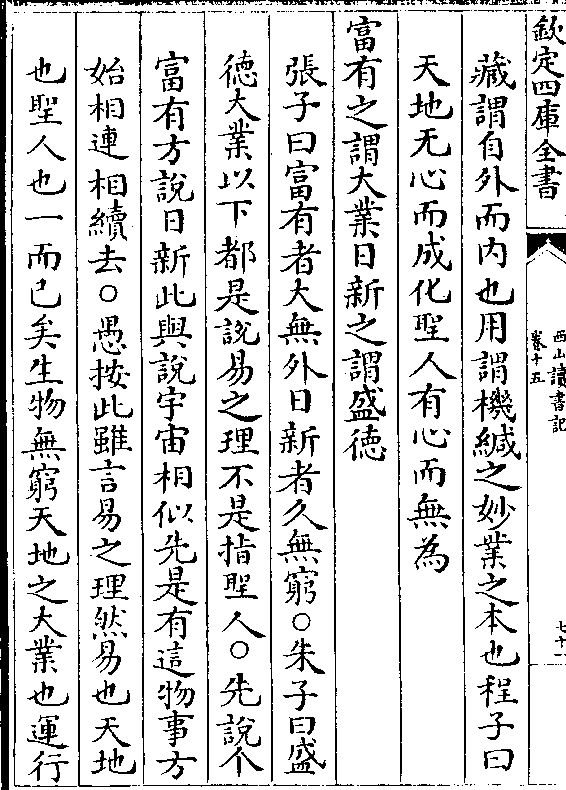 欽定四庫全書
西山讀書記
卷十五
七十一
藏謂自外而内也用謂機緘之妙業之本也程子曰
天地无心而成化聖人有心而無為
富有之謂大業日新之謂盛徳
張子曰富有者大無外日新者久無窮○朱子曰盛
徳大業以下都是說易之理不是指聖人○先說个
富有方說日新此與說宇宙相似先是有這物事方
始相連相續去○愚按此雖言易之理然易也天地
也聖人也一而已矣生物無窮天地之大業也運行